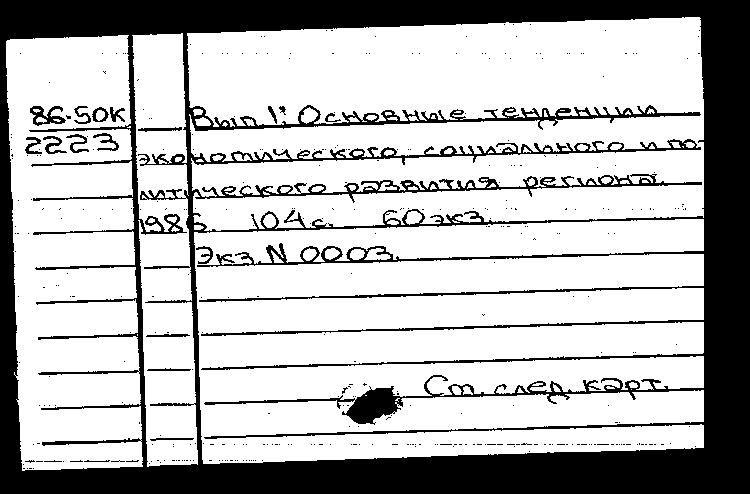 86-50К
2223
Вып 1: Основные тенденции
экономического, социального и по-
литического развития региона.
1986. 104 с. 60 экз.
Экз. N 0003.
См. след. карт.